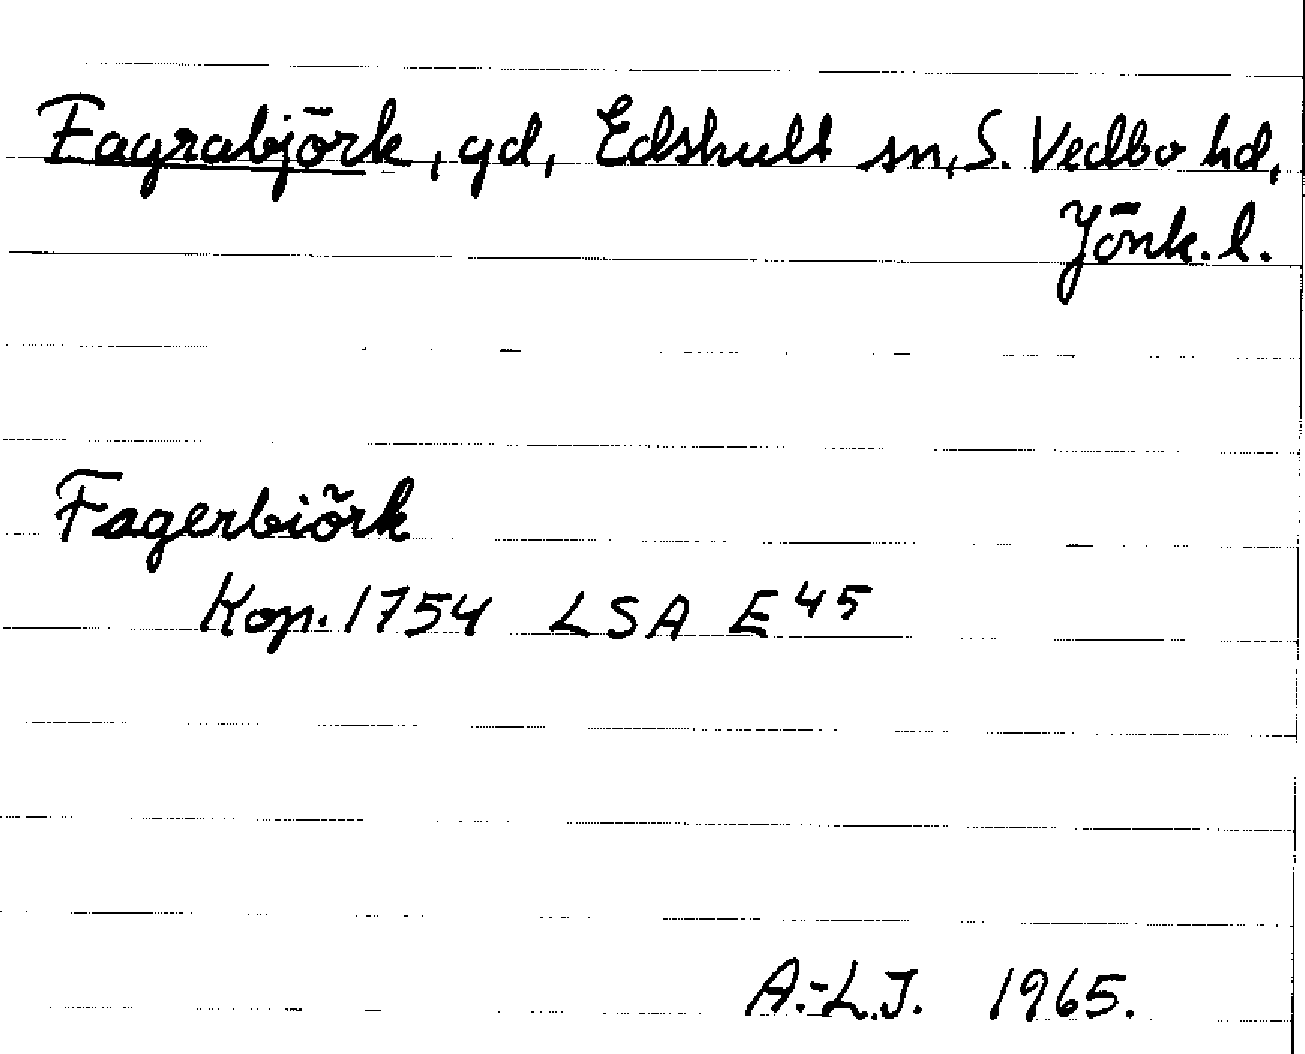 Fagrabjörk, gd, Edshult sn, S. Vedbo hd,
Jönk. l.
Fagerbiörk
Kop. 1754 LSA E 45
A.-L.J. 1965.